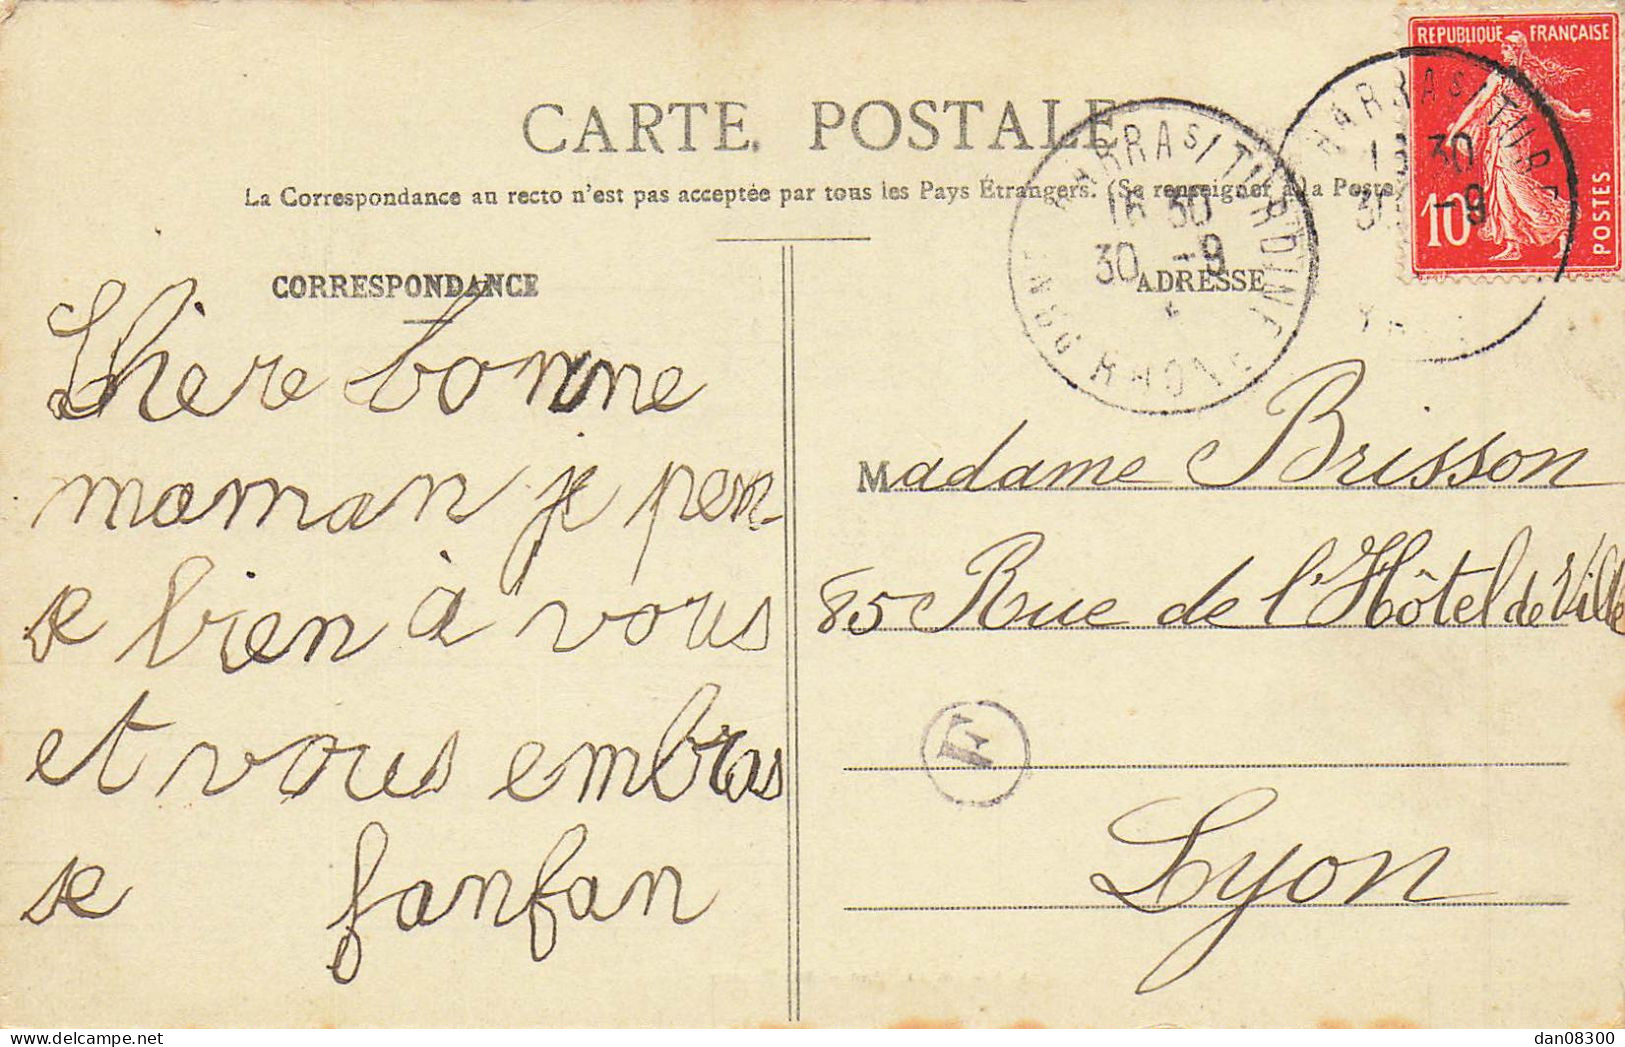 CARTE POSTALE
La Correspondance au recto n'est pas acceptée par tous les Pays Étrangers. (Se renseigner à la Poste
CORRESPONDANCE
ADRESSE
RÉPUBLIQUE FRANÇAISE
10
POSTES
TARRAS/TURDINE
18 30
30 -9
RHONE
30
30 -9
Chère bonne
maman je pen-
se bien à vous
et vous embras
se fanfan
Madame Brisson
85 Rue de l'Hôtel de Ville
F
Lyon
dan08300